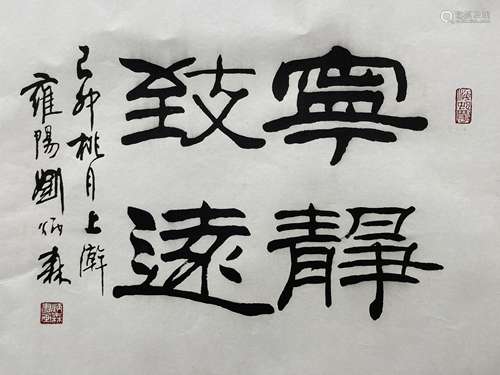 寧靜
致遠
己卯桃月上澣
雍陽劉炳森